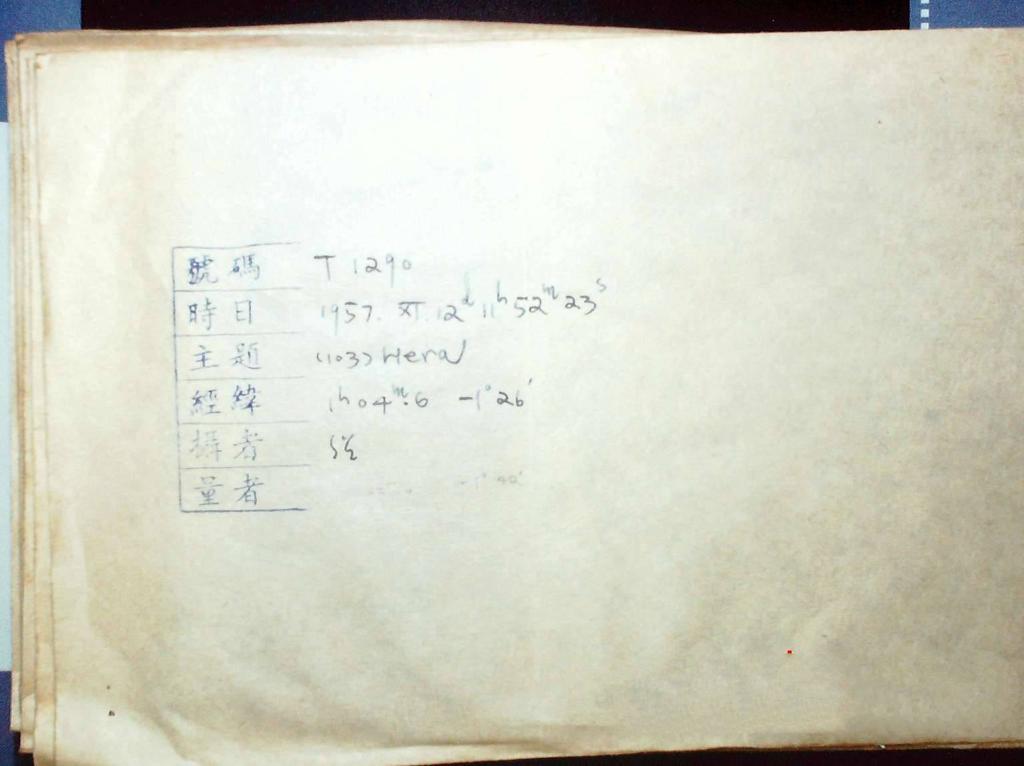 號碼 T 1290
時日 1957. XI. 12ᵈ 11ʰ 52ᵐ 23ˢ
主題 (103) Hera
經緯 1ʰ 04ᵐ.6 -1° 26′
攝者
量者 -1° 40′